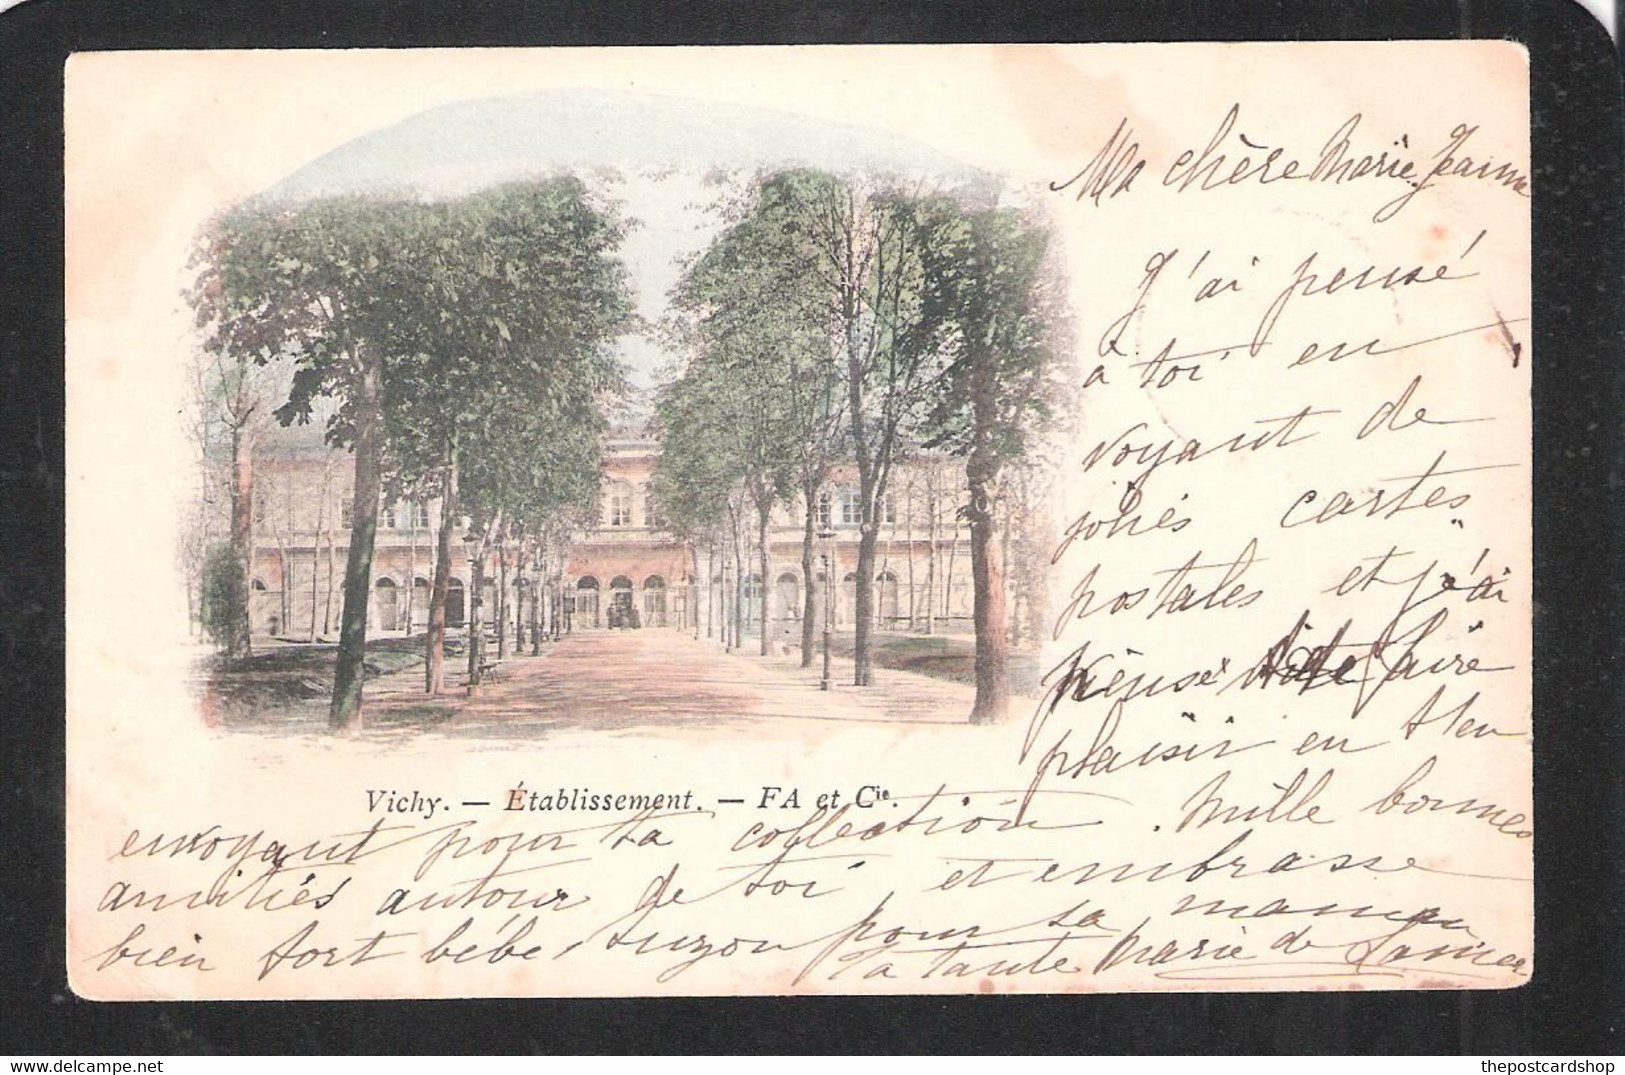 Ma chère Marie Jeanne
J'ai pensé
à toi en
voyant de
jolies cartes
postales et j'ai
pensé te faire
plaisir en t'en
Vichy. — Établissement. — FA et Cie.
envoyant pour ta collection. Mille bonnes
amitiés autour de toi et embrasse
bien fort bébé, Suzon pour sa maman
ta tante Marie de
thepostcardshop